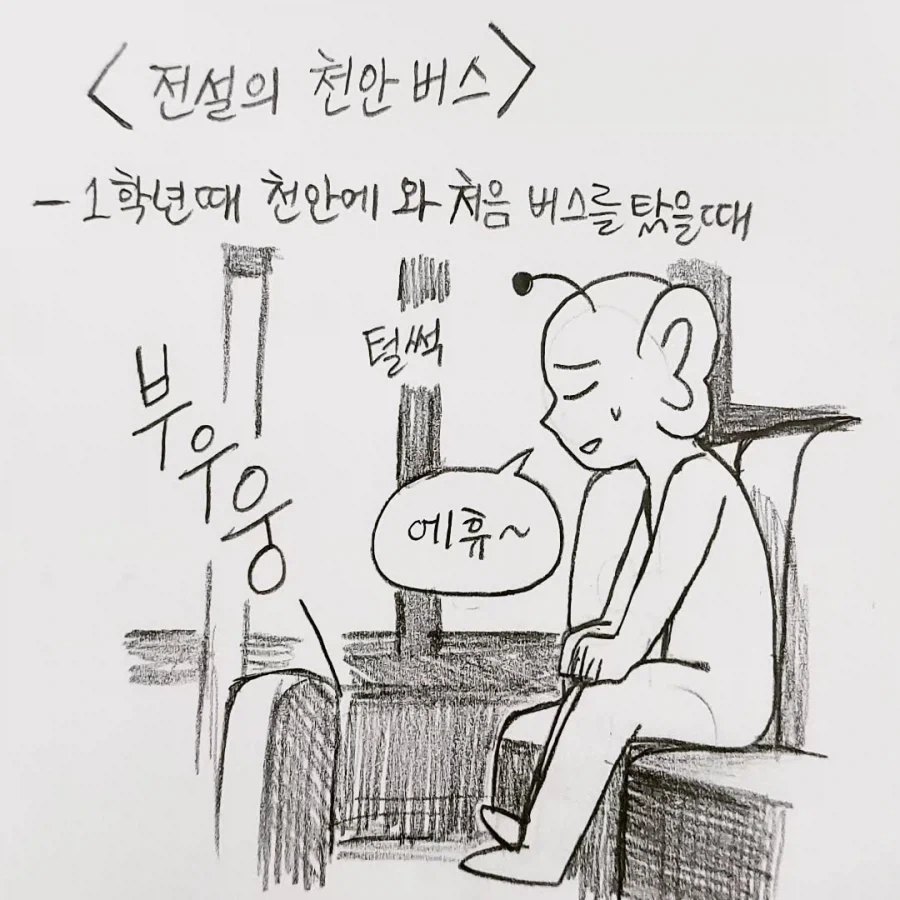 <전설의 천안버스>
- 1학년때 천안에 와 처음 버스를 탔을때
털썩
부우웅
에휴~